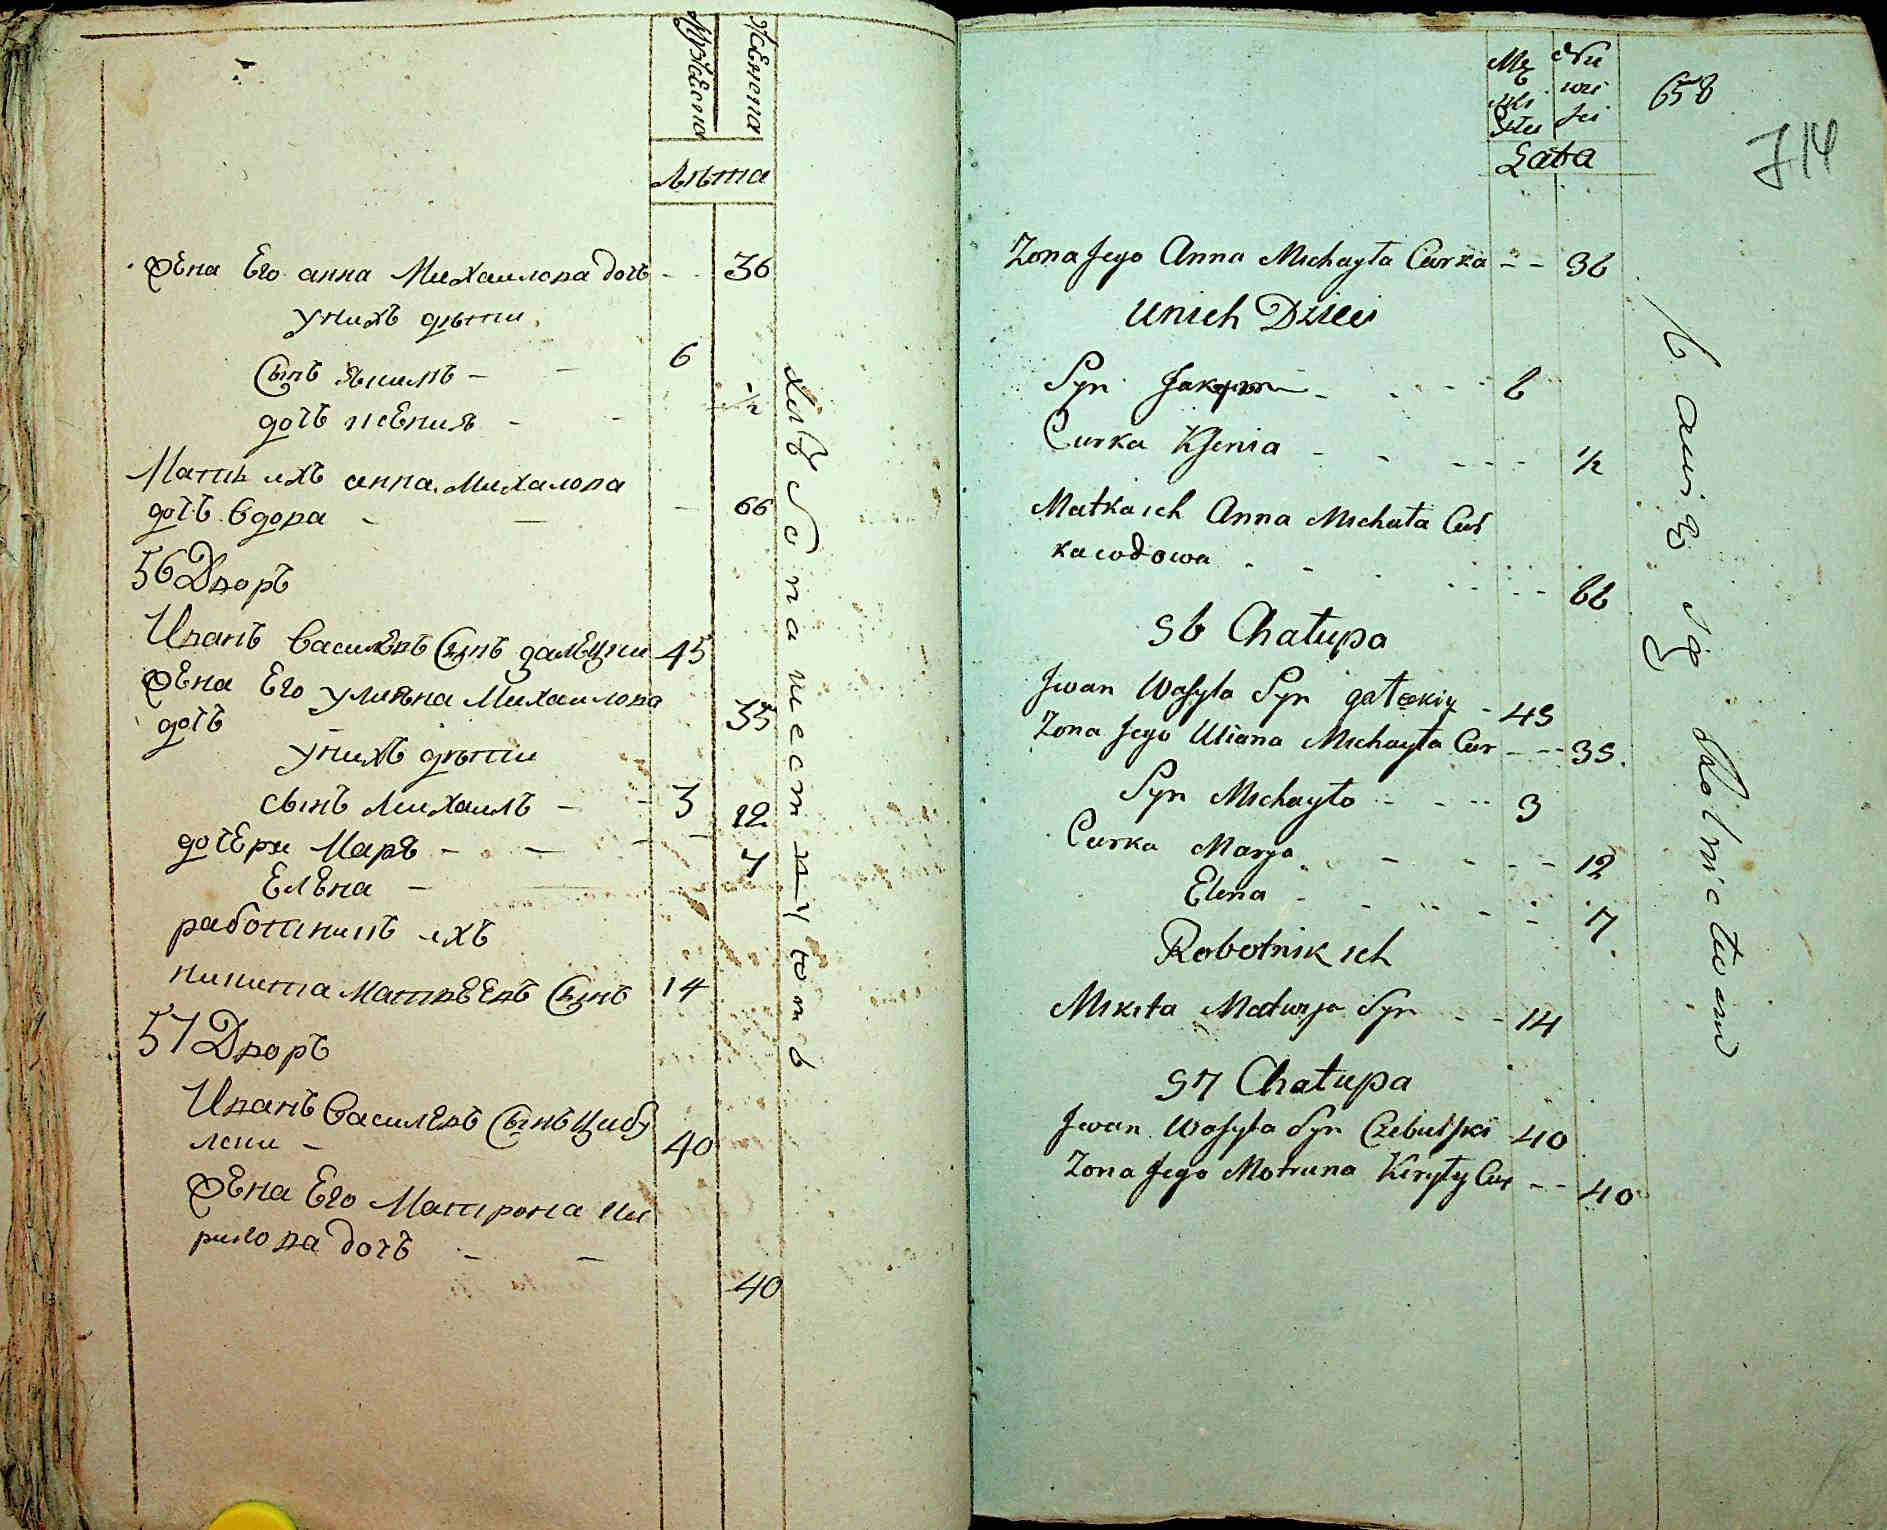 Мужеска
Женска
лѣта
жена Его анна Михаилова дочь - - 36
унихъ дѣти
Сынъ якимъ - - 6
дочь ксения - - 1/2
Мать ихъ анна Михалова
дочь вдова - - - 66
56 Дворъ
Иванъ Василевъ Сынъ галецки 45
жена Его улияна Михаилова
дочь 35
унихъ дѣти
сынъ Михаилъ - - 3
дочери Маря - - - 12
Елена - 7
работникъ ихъ
никита Матвеевъ Сынъ 14
57 Дворъ
Иванъ Василевъ Сынъ Цибу
лски - 40
жена Его Матрона Ки
рилова дочь - - 40
хлѣбопашествуютъ
Mę
zki
Niu
wie
sci
Lata
658
714
Zona Jego Anna Michayła Curka - - 36
Unich Dzieci
Syn Jakym - - - 6
Curka Ksenia - - - - 1/2
Matka ich Anna Michała Cur
ka wdowa - - - - - 66
56 Chałupa
Jwan Wasyla Syn gałeckiy - 45
Zona Jego Uliana Michayła Cur - - - 35
Syn Michayło - - - 3
Curka Marya - - - - 12
Elena - - - - - 7
Robotnik ich
Mikita Matwija Syn - - 14
57 Chałupa
Jwan Wasyla Syn Czebulski 40
Zona Jego Motruna Kiryły Cur - - 40
bawią się Rolnictwem